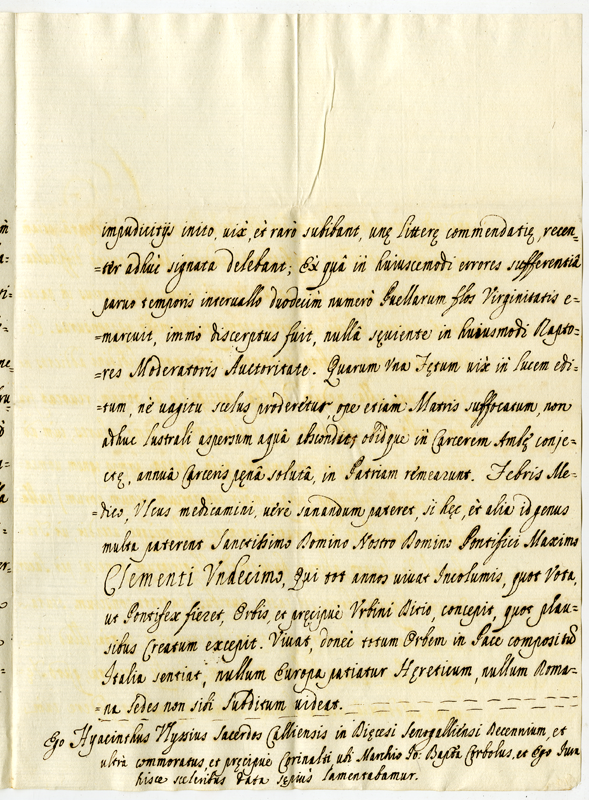 impudicitijs inito, uix, et rarò subibant, unę litterę commendatię, recen-
=ter adhuc signata delebant; Ex quâ in huiuscemodi errores sufferentiâ
paruo temporis interuallo duodecim numerò Puellarum flos Virginitatis e-
=marcuit, immò discerptus fuit, nullâ sęuiente in huiusmodi Rapto-
=res Moderatoris Auctoritate. Quarum Vna Fętum uix in lucem edi-
=tum, nè uagitu scelus proderetur, ope etiàm Matris suffocatum, non
adhuc lustrali aspersum aquâ abscondit; obidque in Carcerem Ambę conje-
ctę, annuâ Carceris pęnâ solutâ, in Patriam remearunt. Febris Me-
=dico, Vlcus medicamini, uerè sanandum pateret, si hęc, èt alia id genus
multa paterent Sanctissimo Domino Nostro Domino Pontifici Maximo
Clementi Vndecimo, Qui tot annos uiuat Incolumis, quot Vota,
ut Pontifex fieret, Orbis, et pręcipuè Vrbini Ditio, concepit, quot plau-
sibus Creatum excepit. Viuat, donèc totum Orbem in Pace compositũ
Italia sentiat, nullum Europa patiatur Hęreticum, nullum Roma-
=na Sedes non sibi Subditum uideat.
Ego Hyacinthus Vlyssius Sacerdos Calliensis in Dięcesi Senogalliensi Decennium, et
ultrà commoratus, et pręcipuè Corinalti ubi Marchio Jo: Bapta Cerbolus, et Ego
hisce sceleribus Data sępiùs lamentabamur.